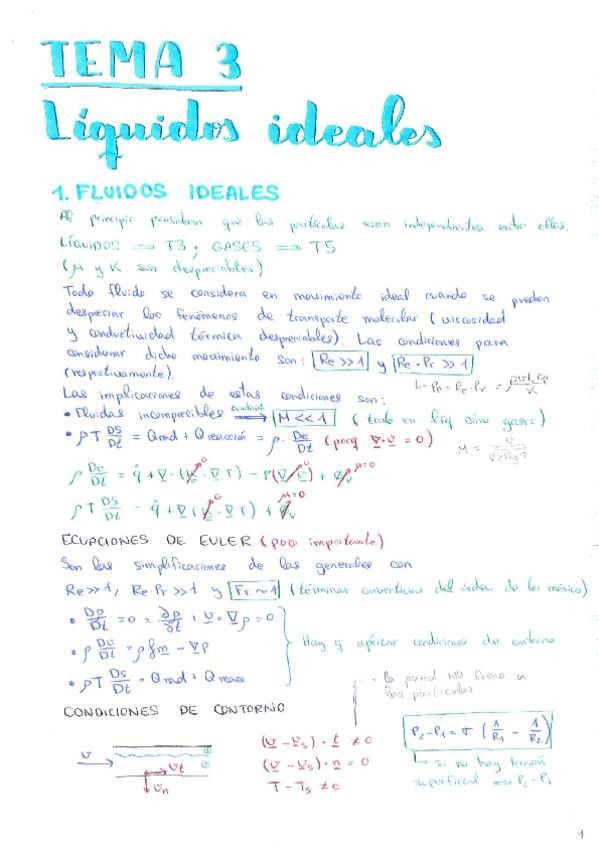 TEMA 3
Líquidos ideales
1. FLUIDOS IDEALES
Al principio pensaban que las partículas eran independientes entre ellas.
LÍQUIDOS ⟹ T3 ; GASES ⟹ T5
(μ y K son despreciables)
Todo fluido se considera en movimiento ideal cuando se pueden
despreciar los fenómenos de transporte molecular (viscosidad
y conductividad térmica despreciables). Las condiciones para
considerar dicho movimiento son: Re >> 1 y Re · Pr >> 1
(respectivamente).
Las implicaciones de estas condiciones son:
• Fluidos incompresibles M << 1 (tanto en líq como gases)
• ρT Ds/Dt = Qrad + Qreacción = ρ · De/Dt (porq ∇·v = 0)
ECUACIONES DE EULER (poco importante)
Son las simplificaciones de las generales con
Re >> 1, Re·Pr >> 1 y Fr ~ 1 (términos convectivos del órden de los másicos)
• Dρ/Dt = 0 = ∂ρ/∂t + v · ∇ρ = 0
• ρ Dv/Dt = ρ fm - ∇P
Hay q aplicar condiciones de contorno
• ρT Ds/Dt = Qrad + Qreacc
la pared NO frena a
las partículas
CONDICIONES DE CONTORNO
P₂-P₁ = σ (1/R₁ - 1/R₂)
(v - vs) · t ≠ 0
(v - vs) · n = 0
T - Ts ≠ 0
v
vt
vn
si no hay tensión
superficial ⟹ P₂ = P₁
1